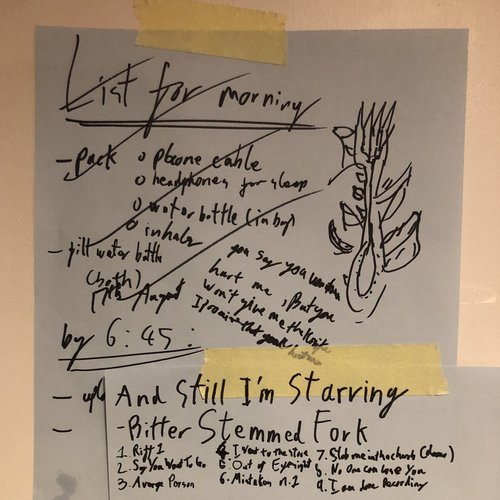 List for morning
- pack o phone cable
o headphones for sleep
o water bottle (in bag)
o inhaler
- fill water bottle
(both)
17th August
you say you
hurt me. But you
won't give me the knife
I promise that you'll
by 6:45:
And Still I'm Starving
- Bitter Stemmed Fork
1. Riff 1
2. Say You Want To Go
3. Average Person
4. I went to the store
5. Out of Eyesight
6. Mistaken n.1
7. Stab me in the church (demo)
8. No One Can Love You
9. I am done Recording